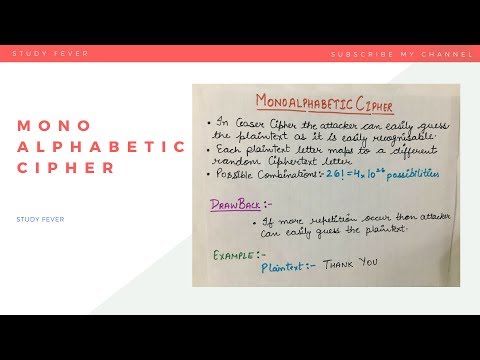 STUDY FEVER
SUBSCRIBE MY CHANNEL
MONO
ALPHABETIC
CIPHER
STUDY FEVER
MONOALPHABETIC CIPHER
• In Ceaser Cipher the attacker can easily guess
the plaintext as it is easily recognisable.
• Each plaintext letter maps to a different
random Ciphertext letter
• Possible Combinations:- 26! = 4x10²⁶ possibilities
DRAWBACK:-
• If more repetition occur than attacker
can easily guess the plaintext.
EXAMPLE:-
Plaintext:- THANK YOU